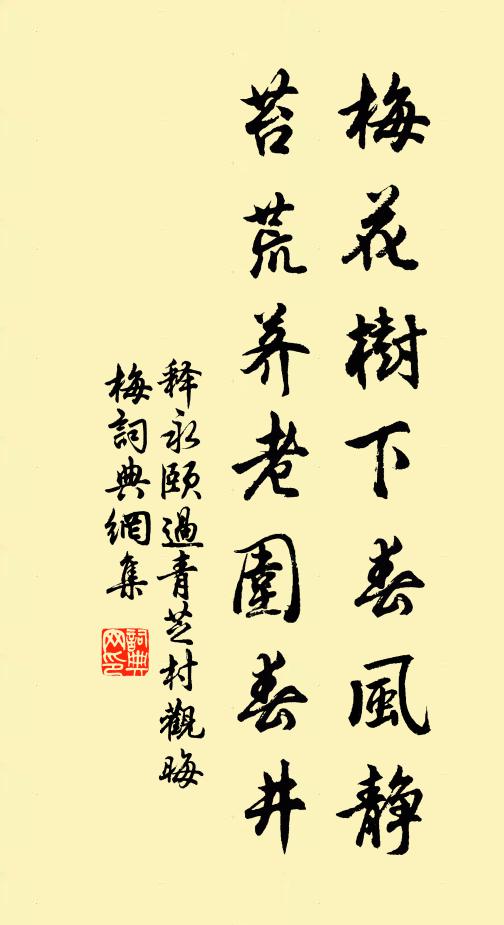 梅花樹下春風静
苔荒养老園春井
释永颐過青芝村觀晦
梅詞典網集
詞典网印